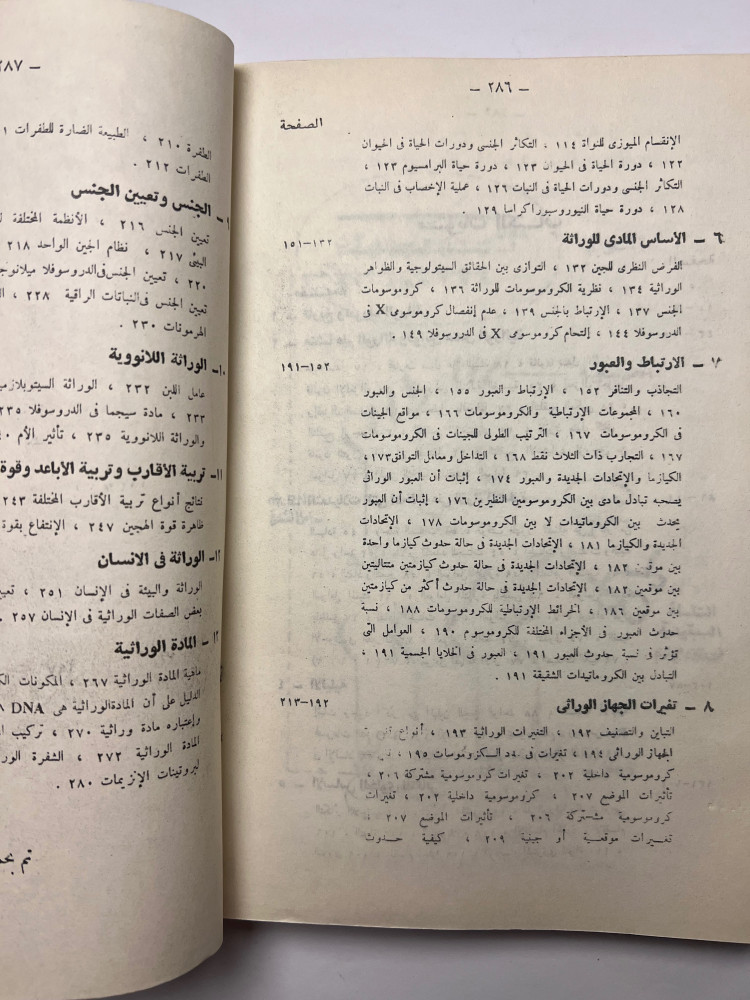 — ٢٨٦ —
الصفحة
الإنقسام الميوزى للنواة ١١٤ ، التكاثر الجنسى ودورات الحياة فى الحيوان
١٢٢ ، دورة الحياة فى الحيوان ١٢٣ ، دورة حياة البرامسيوم ١٢٣ ،
التكاثر الجنسى ودورات الحياة فى النبات ١٢٦ ، عملية الإخصاب فى النبات
١٢٨ ، دورة حياة النيوروسبوراكراسا ١٢٩ .
٦ — الأساس المادى للوراثة ١٣٢—١٥١
الفرض النظرى للجين ١٣٢ ، التوازى بين الحقائق السيتولوجية والظواهر
الوراثية ١٣٤ ، نظرية الكروموسومات للوراثة ١٣٦ ، كروموسومات
الجنس ١٣٧ ، الإرتباط بالجنس ١٣٩ ، عدم إنفصال كروموسومى X فى
الدروسوفلا ١٤٤ ، إلتحام كروموسومى X فى الدروسوفلا ١٤٩ .
٧ — الارتباط والعبور ١٥٢—١٩١
التجاذب والتنافر ١٥٢ ، الإرتباط والعبور ١٥٥ ، الجنس والعبور
١٦٠ ، المجموعات الإرتباطية والكروموسومات ١٦٦ ، مواقع الجينات
فى الكروموسومات ١٦٧ ، الترتيب الطولى للجينات فى الكروموسومات
١٦٧ ، التجارب ذات الثلاث نقط ١٦٨ ، التداخل ومعامل التوافق ١٧٣،
الكيازما والإتحادات الجديدة والعبور ١٧٤ ، إثبات أن العبور الوراثى
يصحبه تبادل مادى بين الكروموسومين النظيرين ١٧٦ ، إثبات أن العبور
يحدث بين الكروماتيدات لا بين الكروموسومات ١٧٨ ، الإتحادات
الجديدة والكيازما ١٨١ ، الإتحادات الجديدة فى حالة حدوث كيازما واحدة
بين موقعين ١٨٢ ، الإتحادات الجديدة فى حالة حدوث كيازمتين متتاليتين
بين موقعين ١٨٢ ، الإتحادات الجديدة فى حالة حدوث أكثر من كيازمتين
بين موقعين ١٨٦ ، الخرائط الإرتباطية للكروموسومات ١٨٨ ، نسبة
حدوث العبور فى الأجزاء المختلفة للكروموسوم ١٩٠ ، العوامل التى
تؤثر فى نسبة حدوث العبور ١٩١ ، العبور فى الخلايا الجسمية ١٩١ ،
التبادل بين الكروماتيدات الشقيقة ١٩١ .
٨ — تغيرات الجهاز الوراثى ١٩٢—٢١٣
التباين والتصنيف ١٩٢ ، التغيرات الوراثية ١٩٣ ، أنواع
الجهاز الوراثى ١٩٤ ، تغيرات فى عدد الكروموسومات ١٩٥ ،
كروموسومية داخلية ٢٠٢ ، تغيرات كروموسومية مشتركة ٢٠٦ ،
تأثيرات الموضع ٢٠٧ ، كروموسومية داخلية ٢٠٢ ، تغيرات
كروموسومية مشتركة ٢٠٦ ، تأثيرات الموضع ٢٠٧ ،
تغييرات موقعية أو جينية ٢٠٩ ، كيفية حدوث
٢٨٧ —
الطفرة ٢١٠ ، الطبيعة الضارة للطفرات
الطفرات ٢١٢ .
الجنس وتعيين الجنس
تعيين الجنس ٢١٦ ، الأنظمة المختلفة
البيئى ٢١٧ ، نظام الجين الواحد ٢١٨
٢٢٠ ، تعيين الجنس فى الدروسوفلا ميلانوج
تعيين الجنس فى النباتات الراقية ٢٢٨ ،
الهرمونات ٢٣٠ .
١٠— الوراثة اللانووية
عامل اللبن ٢٣٢ ، الوراثة السيتوبلازمي
٢٣٣ ، مادة سيجما فى الدروسوفلا ٢٣٥
والوراثة اللانووية ٢٣٥ ، تأثير الأم
١١— تربية الأقارب وتربية الأباعد وقوة
نتائج أنواع تربية الأقارب المختلفة ٢٤٣
ظاهرة قوة الهجين ٢٤٧ ، الإنتفاع بقوة
١٢— الوراثة فى الانسان
الوراثة والبيئة فى الإنسان ٢٥١ ، تعيي
بعض الصفات الوراثية فى الإنسان ٢٥٧ .
١٣— المادة الوراثية
ماهية المادة الوراثية ٢٦٧ ، المكونات
الدليل على أن المادة الوراثية هى DNA
وإعتباره مادة وراثية ٢٧٠ ، تركيب
المادة الوراثية ٢٧٢ ، الشفرة الور
لبروتينات الإنزيمات ٢٨٠ .
تم بحم